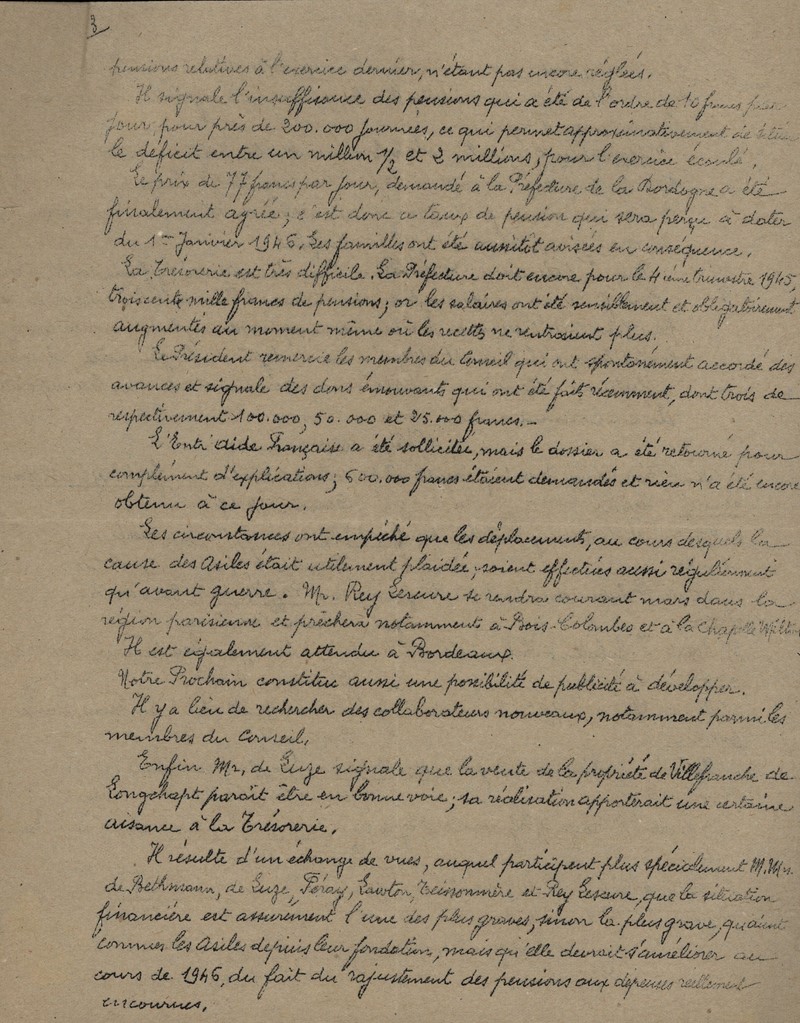 3
pensions relatives à l'exercice dernier, n'étant pas encore réglées.
Il signale l'insuffisance des pensions qui a été de l'ordre de 10 francs par
jour pour près de 200.000 journées, ce qui permet approximativement de
le déficit entre un million 1/2 et 2 millions, pour l'exercice écoulé.
Le prix de 77 francs par jour, demandé à la Préfecture de la Dordogne a été
finalement agréé; c'est donc ce taux de pension qui sera perçu à dater
du 1er Janvier 1946. Les familles ont été aussitôt avisées en conséquence.
La Trésorerie est très difficile. La Préfecture doit encore pour le 4ième trimestre 1945,
trois cent mille francs de pensions; or les salaires ont été sensiblement et obligatoirement
augmentés au moment même où les recettes ne rentraient plus.
Le Président remercie les membres du Conseil qui ont spontanément accordé des
avances et signale des dons émouvants qui ont été faits récemment, dont trois de
respectivement 100.000, 50.000 et 25.000 francs.-
L'Entr'aide Française a été sollicitée, mais le dossier a été retourné pour
complément d'explications; 600.000 francs étaient demandés et rien n'a été encore
obtenu à ce jour.
Les circonstances ont empêché que les déplacements, au cours desquels la
cause des Asiles était utilement plaidée, soient effectués aussi régulièrement
qu'avant guerre. Mr. Rey Lescure se rendra courant mars dans la
région parisienne et prêchera notamment à Bois-Colombes et à la Chapelle Milton
Il est également attendu à Bordeaux.
Notre Prochain constitue aussi une possibilité de publicité à développer.
Il y a lieu de rechercher des collaborateurs nouveaux, notamment parmi les
membres du Conseil.
Enfin Mr. de Luze signale que la vente de la propriété de Villefranche de
Longchapt paraît être en bonne voie; sa réalisation apporterait une certaine
aisance à la Trésorerie.
Il résulte d'un échange de vues, auquel participent plus spécialement M.Mrs.
de Bethmann, de Luze, Féray, Lawton, Teissonnière et Rey Lescure, que la situation
financière est assurément l'une des plus graves, sinon la plus grave, qu'aient
connues les Asiles depuis leur fondation, mais qu'elle devrait s'améliorer au
cours de 1946, du fait du rajustement des pensions aux dépenses réellement
encourues.